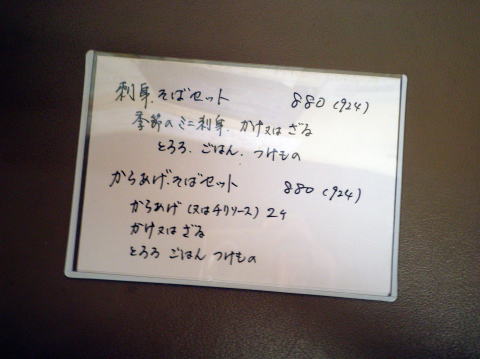 刺身.そばセット 880 (924)
季節のミニ刺身. かけ又は ざる
とろろ. ごはん. つけもの
からあげ.そばセット 880 (924)
からあげ (又はチリソース) 2ケ
かけ又は ざる
とろろ ごはん つけもの